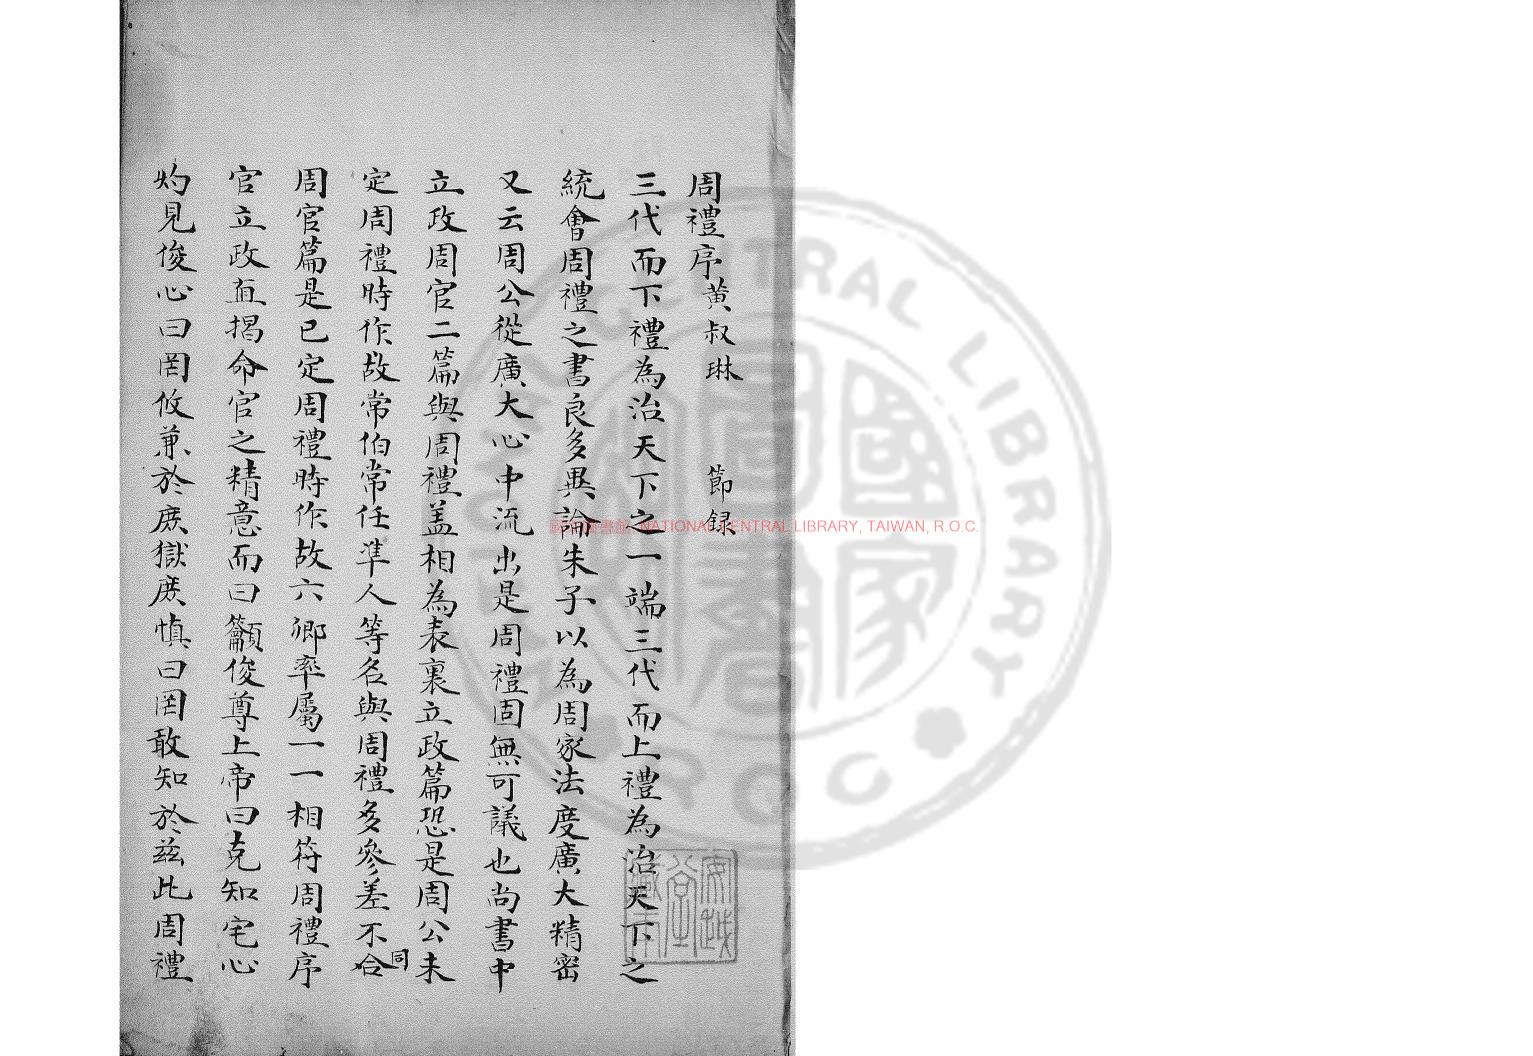 周禮序黃叔琳 節錄
三代而下禮為治天下之一端三代而上禮為治天下之
統會周禮之書良多異論朱子以為周家法度廣大精密
又云周公從廣大心中流出是周禮固無可議也尚書中
立政周官二篇與周禮蓋相為表裏立政篇恐是周公未
定周禮時作故常伯常任準人等名與周禮多參差不合同
周官篇是已定周禮時作故六卿率屬一一相符周禮序
官立政直揭命官之精意而曰籲俊尊上帝曰克知宅心
灼見俊心曰罔攸兼於庶獄庶慎曰罔敢知於茲此周禮
安越堂藏本
國家圖書館 NATIONAL CENTRAL LIBRARY, TAIWAN, R.O.C.
NATIONAL CENTRAL LIBRARY
R.O.C
國家圖書館